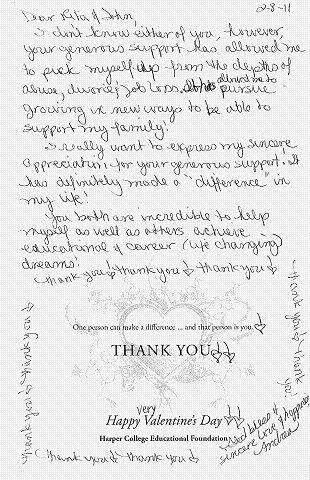 2-8-11
Dear Rita & John,
I don't know either of you, however,
your generous support has allowed me
to pick myself up from the depths of
abuse, divorce, job loss, allowed me to pursue
growing in new ways to be able to
support my family!
I really want to express my sincere
appreciation for your generous support. It
has definitely made a "difference" in
my life!
You both are incredible to help
myself as well as others achieve
educational & career (life changing)
dreams!
Thank you Thank you Thank you
One person can make a difference ... and that person is you.
THANK YOU
very
Happy Valentine's Day
Harper College Educational Foundation
Thank you Thank you
Thank you Thank you
Thank you Thank you
sincere love & happiness
Andrea